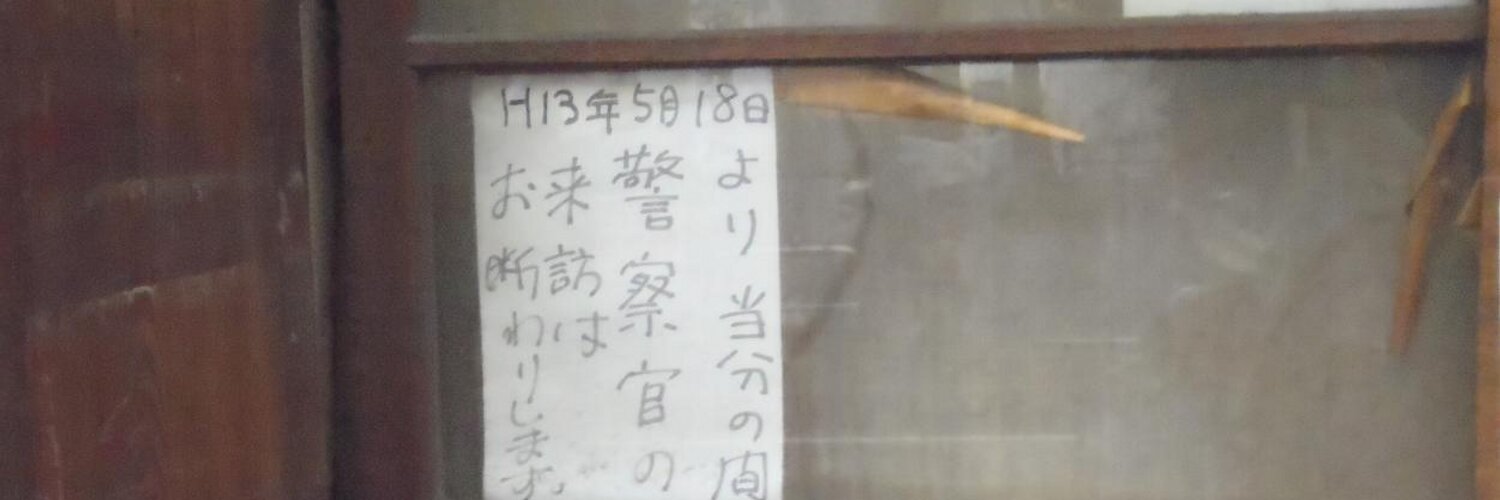 H13年5月18日
より当分の間
警察官の
来訪は
お断わりします。